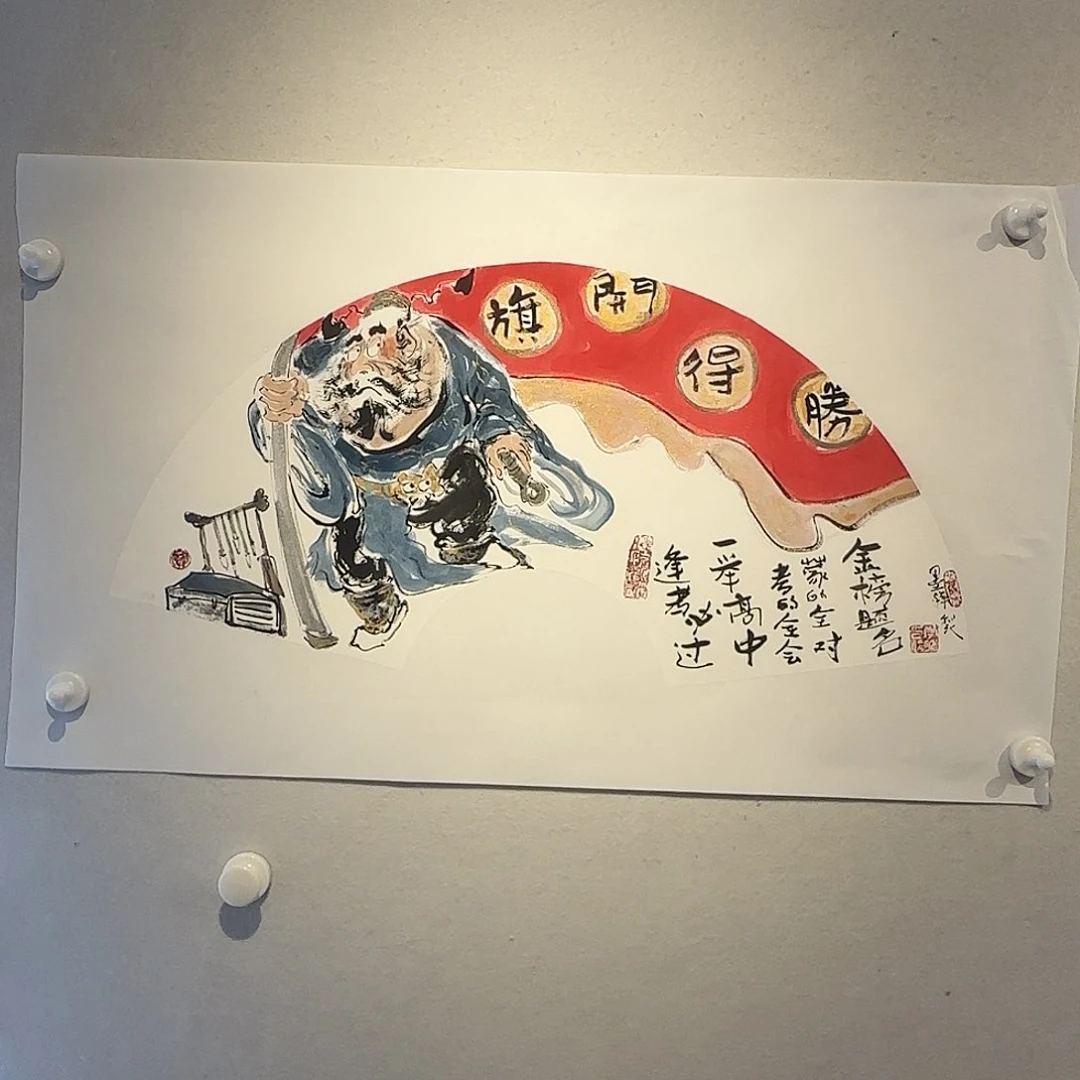 旗開得勝
金榜題名
蒙的全对
考的全会
一举高中
逢考必过